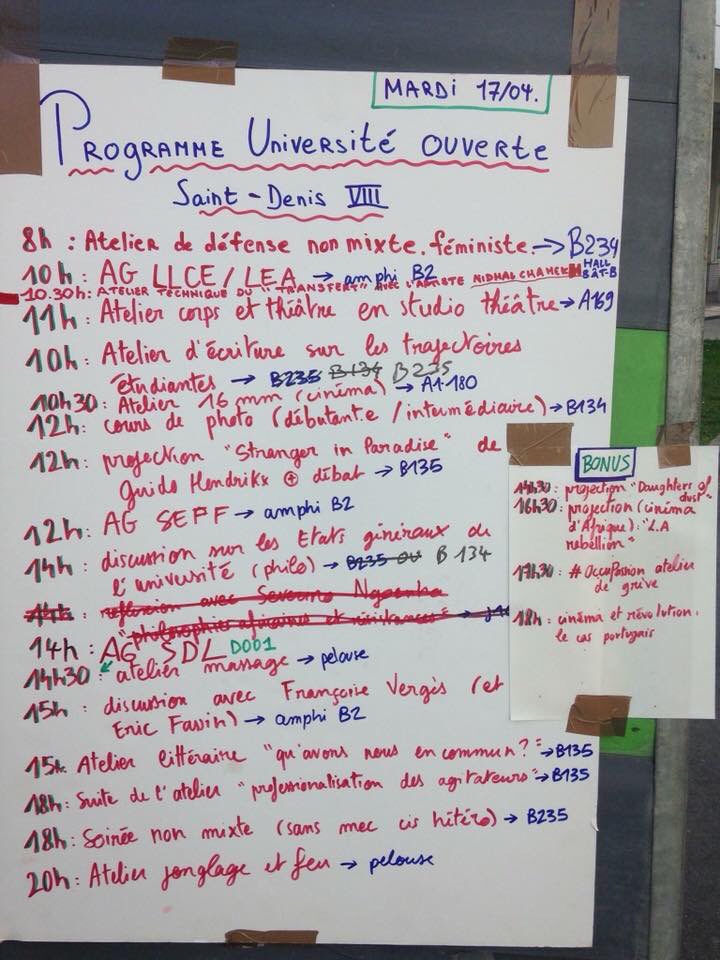 MARDI 17/04.
PROGRAMME UNIVERSITÉ OUVERTE
Saint-Denis VIII
8h : Atelier de défense non mixte.féministe. → B234
10h : AG LLCE / LEA → amphi B2
10.30h: ATELIER TECHNIQUE DU "TRANSFERT" AVEC L'ARTISTE NIDHAL CHAMEKH HALL BÂT-B
11h : Atelier corps et théâtre en studio théâtre → A169
10h : Atelier d'écriture sur les trajectoires
étudiantes → B235 B134 B235
10h30 : Atelier 16 mm (cinéma) → A1-180
12h : cours de photo (débutant.e / intermédiaire) → B134
12h : projection "Stranger in Paradise" de
Guido Hendrikx ⊕ débat → B135
12h : AG SEPF → amphi B2
14h : discussion sur les Etats généraux de
l'université (philo) → B235 OU B 134
14h : réflexion avec Severino Ngoenha
"philosophies africaines et résistances" →
14h : AG SDL D001
14h30 : atelier massage → pelouse
15h : discussion avec Françoise Vergès (et
Eric Fassin) → amphi B2
15h : Atelier littéraire "qu'avons nous en commun ?" → B135
18h : Suite de l'atelier "professionalisation des agitateurs" → B135
18h : Soirée non mixte (sans mec cis hétéro) → B235
20h : Atelier jonglage et feu → pelouse
BONUS
14h30 : projection "Daughters of
dust"
16h30 : projection (cinéma
d'Afrique) : "L.A
rébellion"
17h30 : # Occupassion atelier
de grève
18h : cinéma et révolution.
le cas portugais